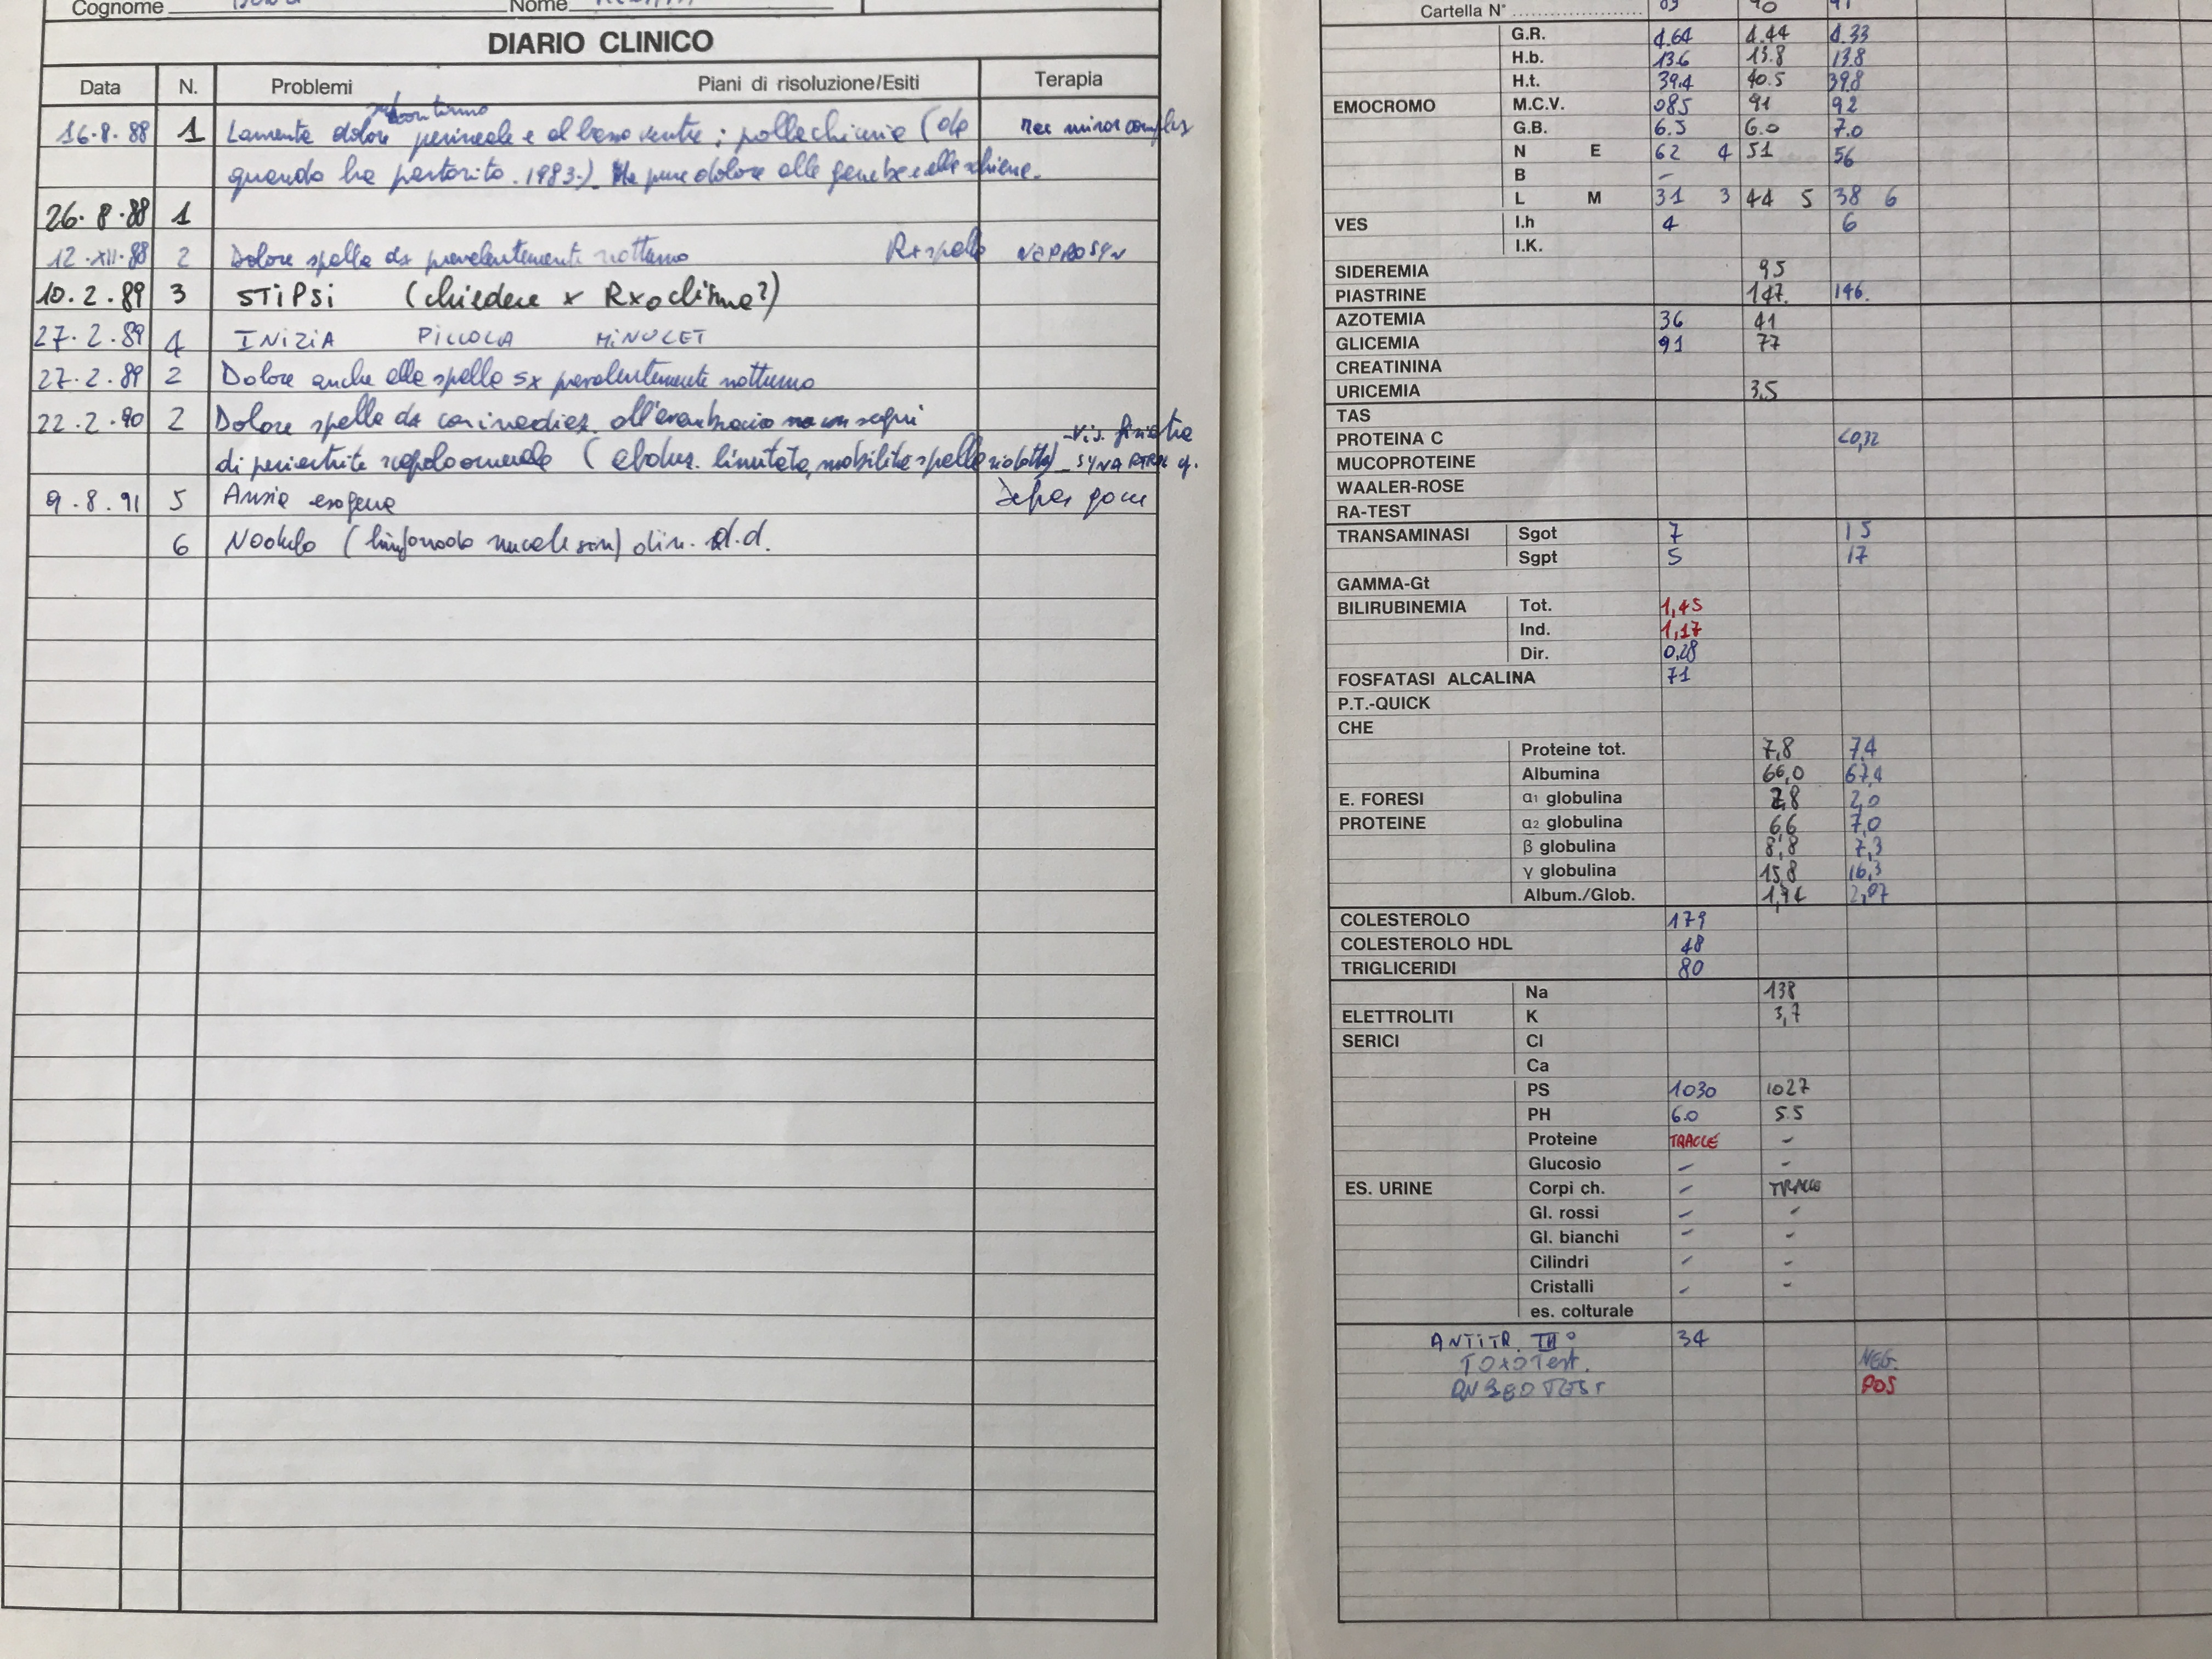 Cognome
Nome
DIARIO CLINICO
Data N. Problemi Piani di risoluzione/Esiti Terapia
16.8.88 1 Lamenta dolore perineale e al basso ventre ; pollachiuria (da
quando ha partorito .1983.). Ha pure dolore alle gambe e alla schiena.
26.8.88 1
12.XII.88 2 Dolore spalla dx prevalentemente notturno Rx spalla NAPROSYN
10.2.89 3 STIPSI (chiedere x Rx clisma?)
27.2.89 4 INIZIA PILLOLA MINULET
27.2.89 2 Dolore anche alla spalla sx prevalentemente notturno
22.2.90 2 Dolore spalla dx con irradiaz. all'avambraccio con segni
- Vis. fisiatra
di periartrite scapolo omerale ( abduz. limitata, mobilità spalla ridotta)
9.8.91 5 Ansia esogena
6 Nodulo (linfonodo nucale sin) d.d.
Cartella N° 89 90 91
G.R. 4.64 4.44 4.33
H.b. 13.6 13.8 13.8
H.t. 39.4 40.5 39.8
EMOCROMO M.C.V. 085 91 92
G.B. 6.5 6.0 7.0
N E 62 4 51 56
B -
L M 31 3 44 5 38 6
VES I.h 4 6
I.K.
SIDEREMIA 95
PIASTRINE 147. 146.
AZOTEMIA 36 41
GLICEMIA 91 77
CREATININA
URICEMIA 3,5
TAS
PROTEINA C <0,32
MUCOPROTEINE
WAALER-ROSE
RA-TEST
TRANSAMINASI Sgot 7 15
Sgpt 5 17
GAMMA-Gt
BILIRUBINEMIA Tot. 1,45
Ind. 1,17
Dir. 0,28
FOSFATASI ALCALINA 71
P.T.-QUICK
CHE
Proteine tot. 7,8 7,4
Albumina 66,0 67,4
E. FORESI α1 globulina 2,8 2,0
PROTEINE α2 globulina 6,6 7,0
β globulina 8,8 7,3
γ globulina 15,8 16,3
Album./Glob. 1,94 2,07
COLESTEROLO 179
COLESTEROLO HDL 48
TRIGLICERIDI 80
Na 138
ELETTROLITI K 3,7
SERICI Cl
Ca
PS 1030 1027
PH 6.0 5.5
Proteine TRACCE -
Glucosio - -
ES. URINE Corpi ch. - TRACCE
Gl. rossi - -
Gl. bianchi - -
Cilindri - -
Cristalli - -
es. colturale
ANTITR. III° 34
TOXOTest. NEG.
TEST POS